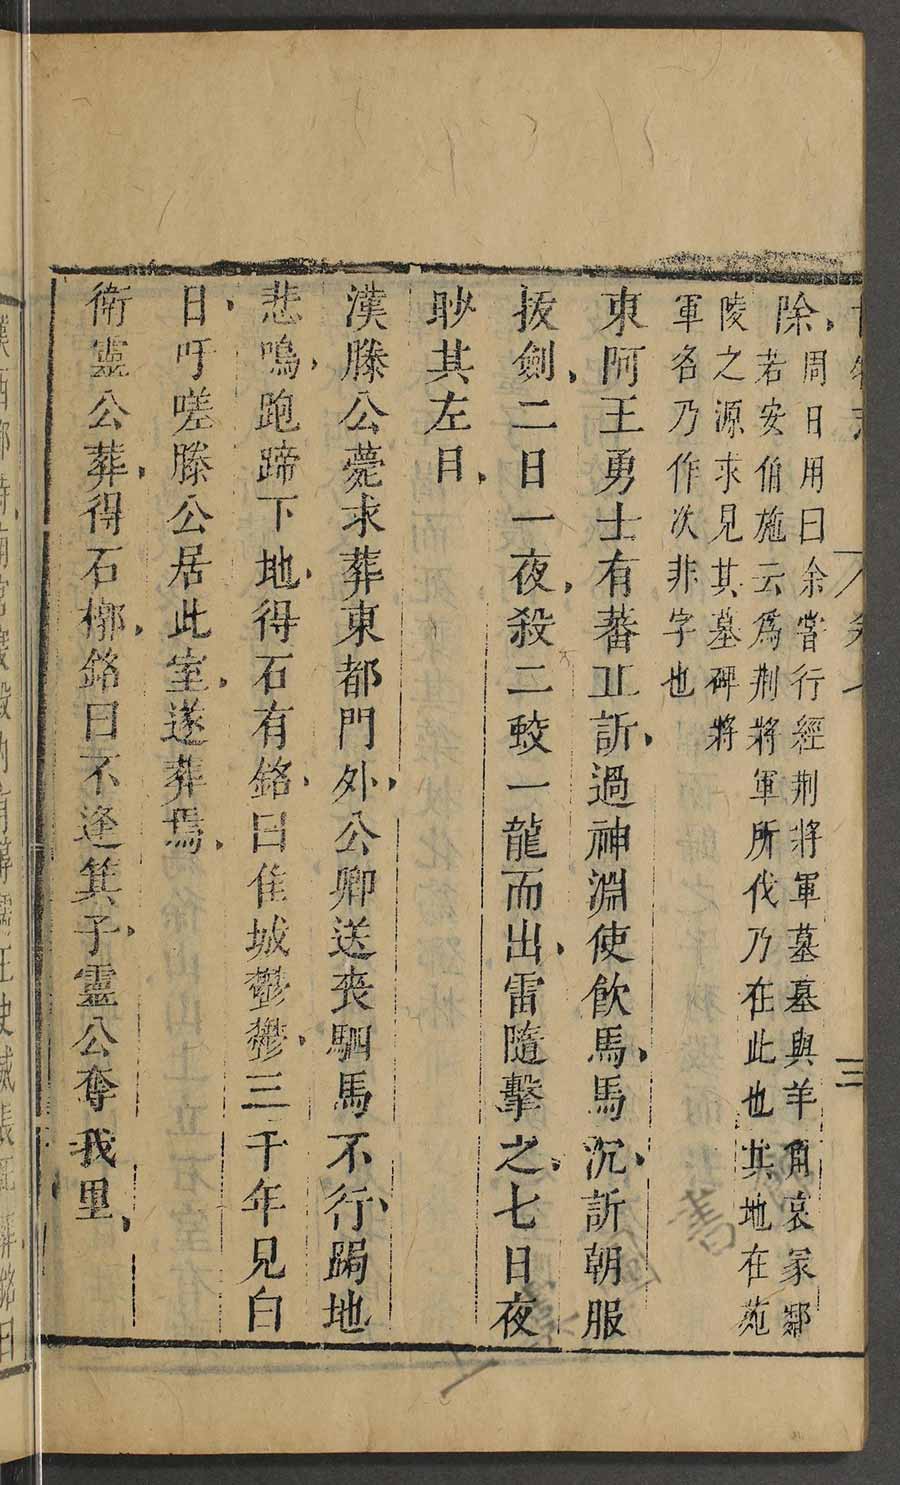 除
周日用曰余嘗行經荆將軍墓墓與羊角哀冢鄰
若安伯施云爲荆將軍所伐乃在此也其地在苑
陵之源求見其墓碑將
軍名乃作次非字也
東阿王勇士有蕃丘訢過神淵使飲馬馬沉訢朝服
拔劍二日一夜殺二蛟一龍而出雷隨擊之七日夜
眇其左目
漢滕公薨求葬東都門外公卿送喪駟馬不行跼地
悲鳴跑蹄下地得石有銘曰佳城鬱鬱三千年見白
日吁嗟滕公居此室遂葬焉
衛靈公葬得石槨銘曰不逢箕子靈公奪我里